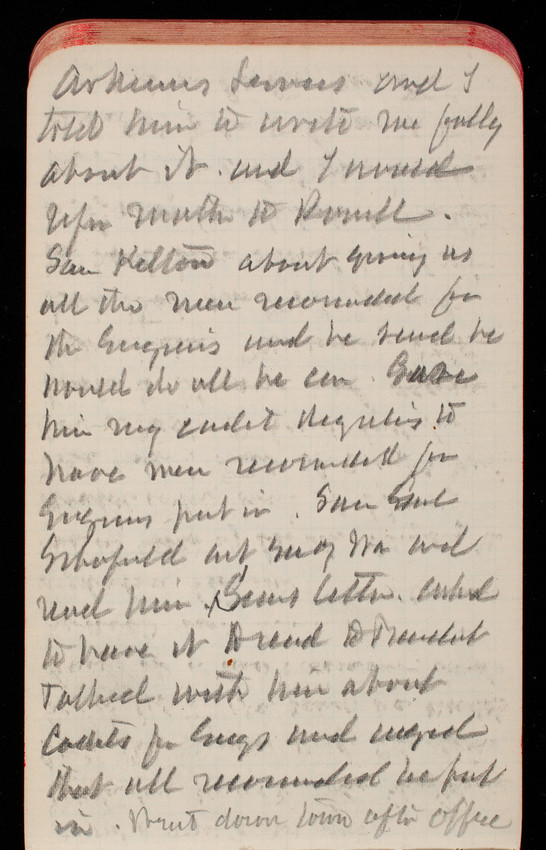 and I
told him to write me fully
about it and I would
refer matter to Powell.
Saw Kelton about giving us
all the men recomended for
the Engineers and he said he
would do all he can. Gave
him my cadet to
have men recomended for
Engineers put in. Saw Genl
Schofield act Secy War and
read him letter. asked
to have it read to President
Talked with him about
Cadets for Engs and urged
that all recomended be put
in. Went down town after office